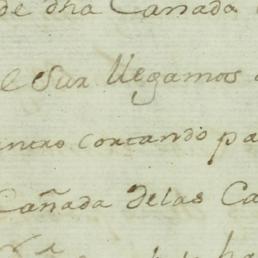 de dha Cañada
el Sur llegamos
entro cortando pa
Cañada delas Ca